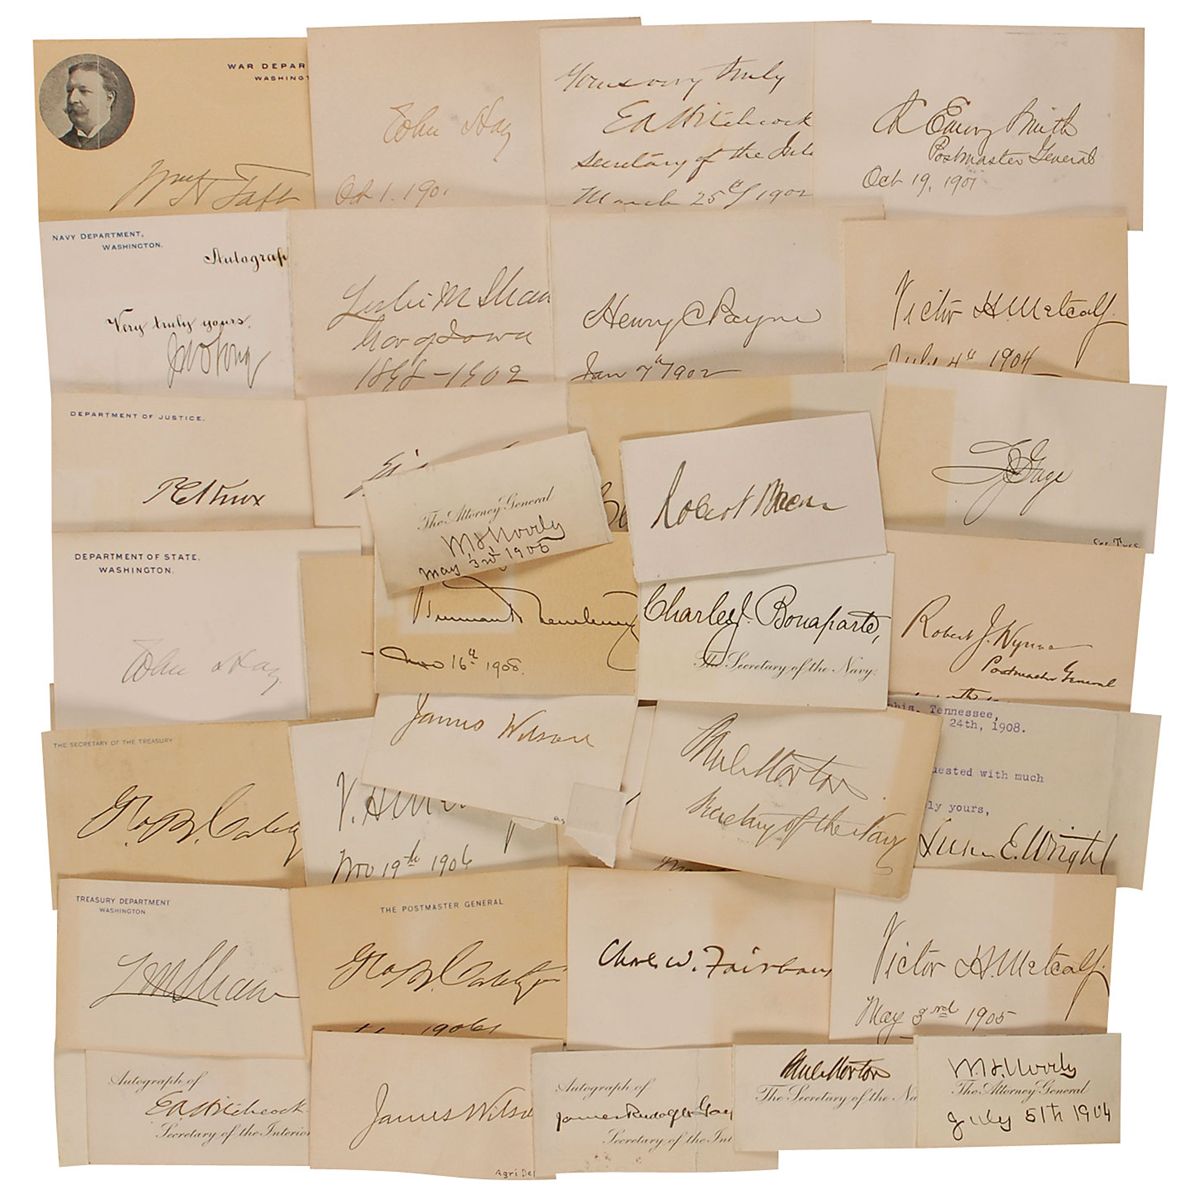 WAR DEPAR
WASHINGT
Wm H Taft
John Hay
Oct 1. 190
Yours very truly
EA Hitchcock
Secretary of the Inte
March 25th/1902
Ch Emory Smith
Postmaster General
Oct 19, 1901
NAVY DEPARTMENT,
WASHINGTON.
Autograph
Very truly yours,
J D Long
Leslie M Shaw
Gov of Iowa
1898-1902
Henry C Payne
Jan 7th 1902
Victor H. Metcalf.
July 4th 1904
DEPARTMENT OF JUSTICE.
P C Knox
The Attorney General
W H Moody
May 3rd 1905
Robert Bacon
L J Gage
DEPARTMENT OF STATE,
WASHINGTON.
John Hay
Truman H Newberry
Nov 16th 1908.
Charles J. Bonaparte,
The Secretary of the Navy.
Robert J. Wynne
Postmaster General
THE SECRETARY OF THE TREASURY
Geo B. Cortelyo
V. H Met
Nov 19th 1906
James Wilson
Paul Morton
Secretary of the Navy
phis, Tennessee,
24th, 1908.
uested with much
ly yours,
Luke E. Wright
TREASURY DEPARTMENT
WASHINGTON
L M Shaw
THE POSTMASTER GENERAL
Geo B. Cortelyo
1906
Charles W. Fairban
Victor H. Metcalf.
May 3rd 1905
Autograph of
EA Hitchcock
Secretary of the Interior
James Wilso
Agri De
Autograph of
James Rudolph Gar
Secretary of the Int
Paul Morton
The Secretary of the Na
W H Moody
The Attorney General
July 5th 1904